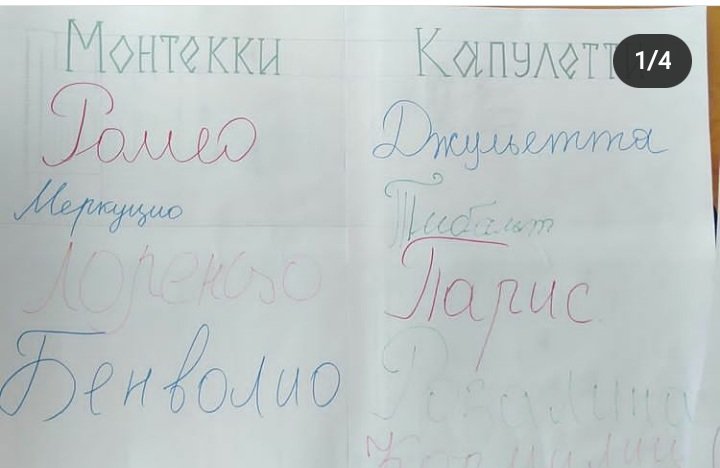 Монтекки
Ромео
Меркуцио
Лоренцо
Бенволио
Капулетт
1/4
Джульетта
Тибальт
Парис
Розалина